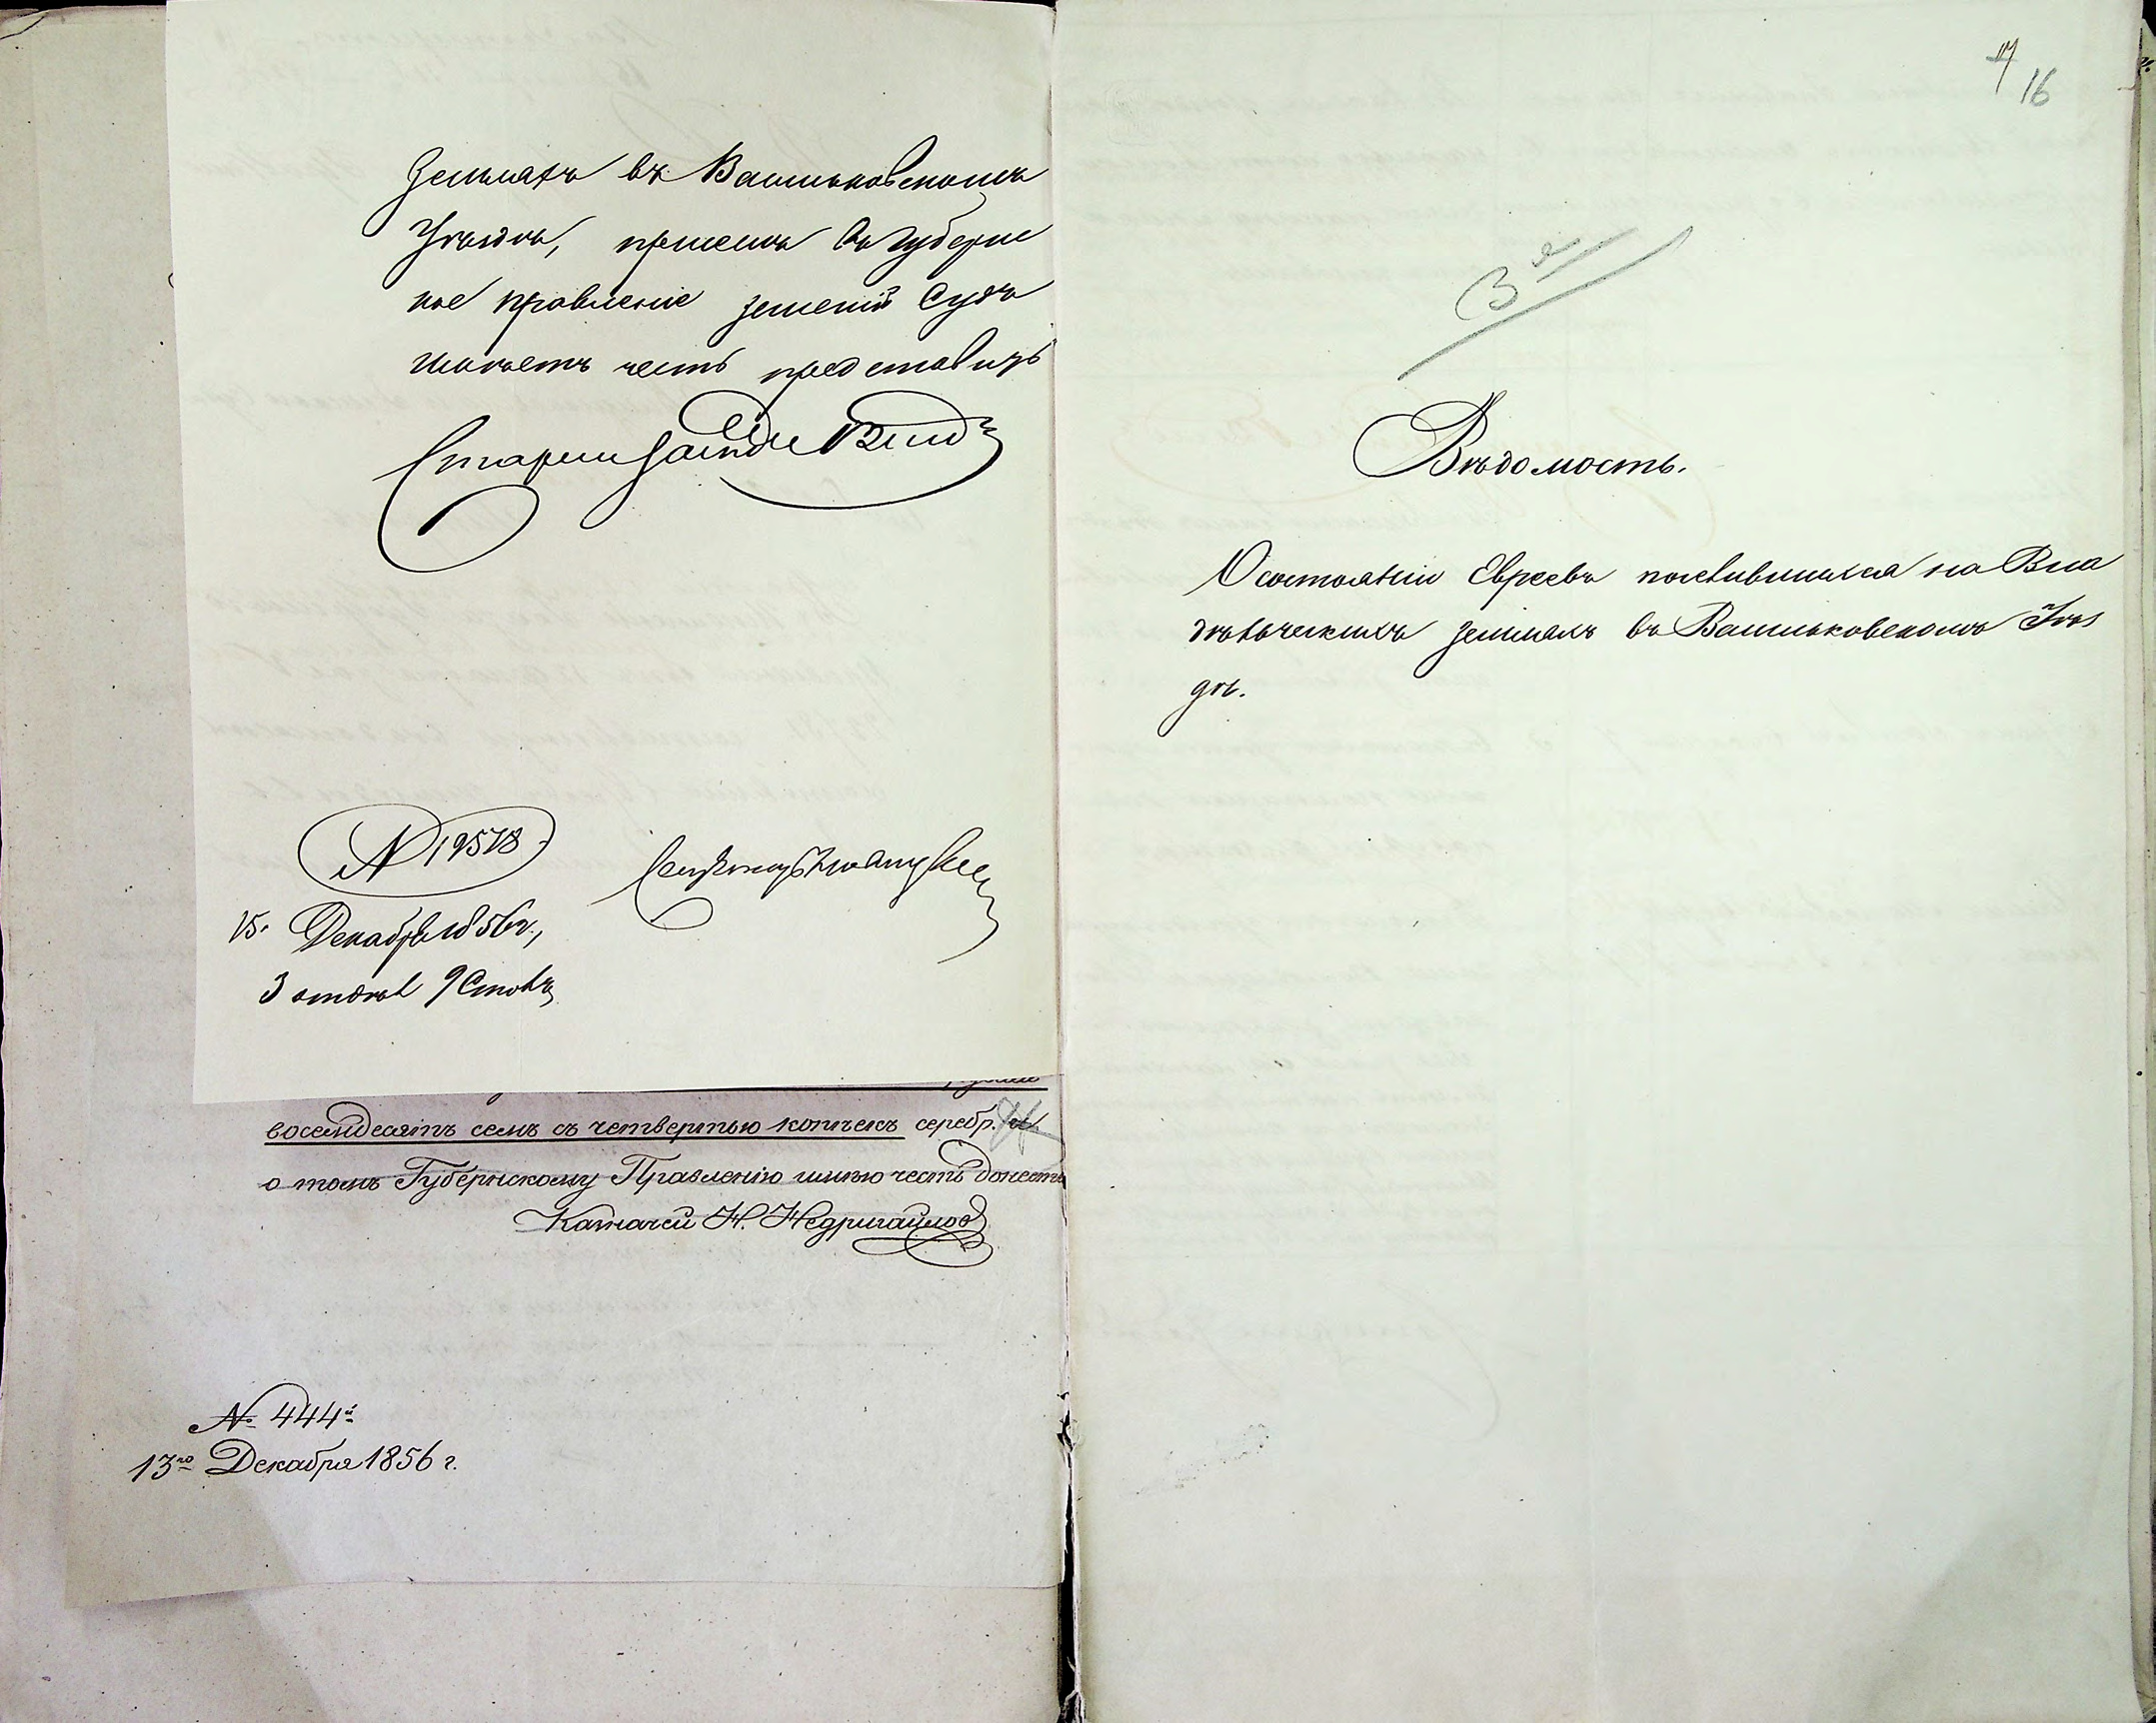 земляхъ въ Васильковскомъ
Уѣздѣ, при семъ въ Губерн
ное правленіе земскій Судъ
имѣетъ честь представить
Старшій Засѣдатель
№ 19578
15. Декабря 1856 г.,
3 отдѣл 9 Столъ
Секретарь
восемдесятъ семь съ четвертью копѣекъ серебр.
о томъ Губернскому Правленію имѣю честь донесть
Казначей Н. Недригайлов
№ 444й
13го Декабря 1856 г.
16
3я
Вѣдомость.
О состояніи Евреевъ поселившихся на Вла
дѣльческихъ земляхъ въ Васильковскомъ Уѣз
дѣ.